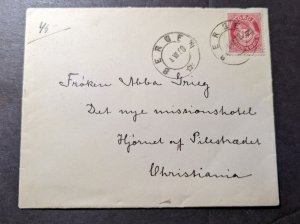 4/5
BERGEN
BERGEN
NORGE
Frøken Abba Grieg
Det nye missionshotel
Hjörnet af Pilestrædet
Christiania